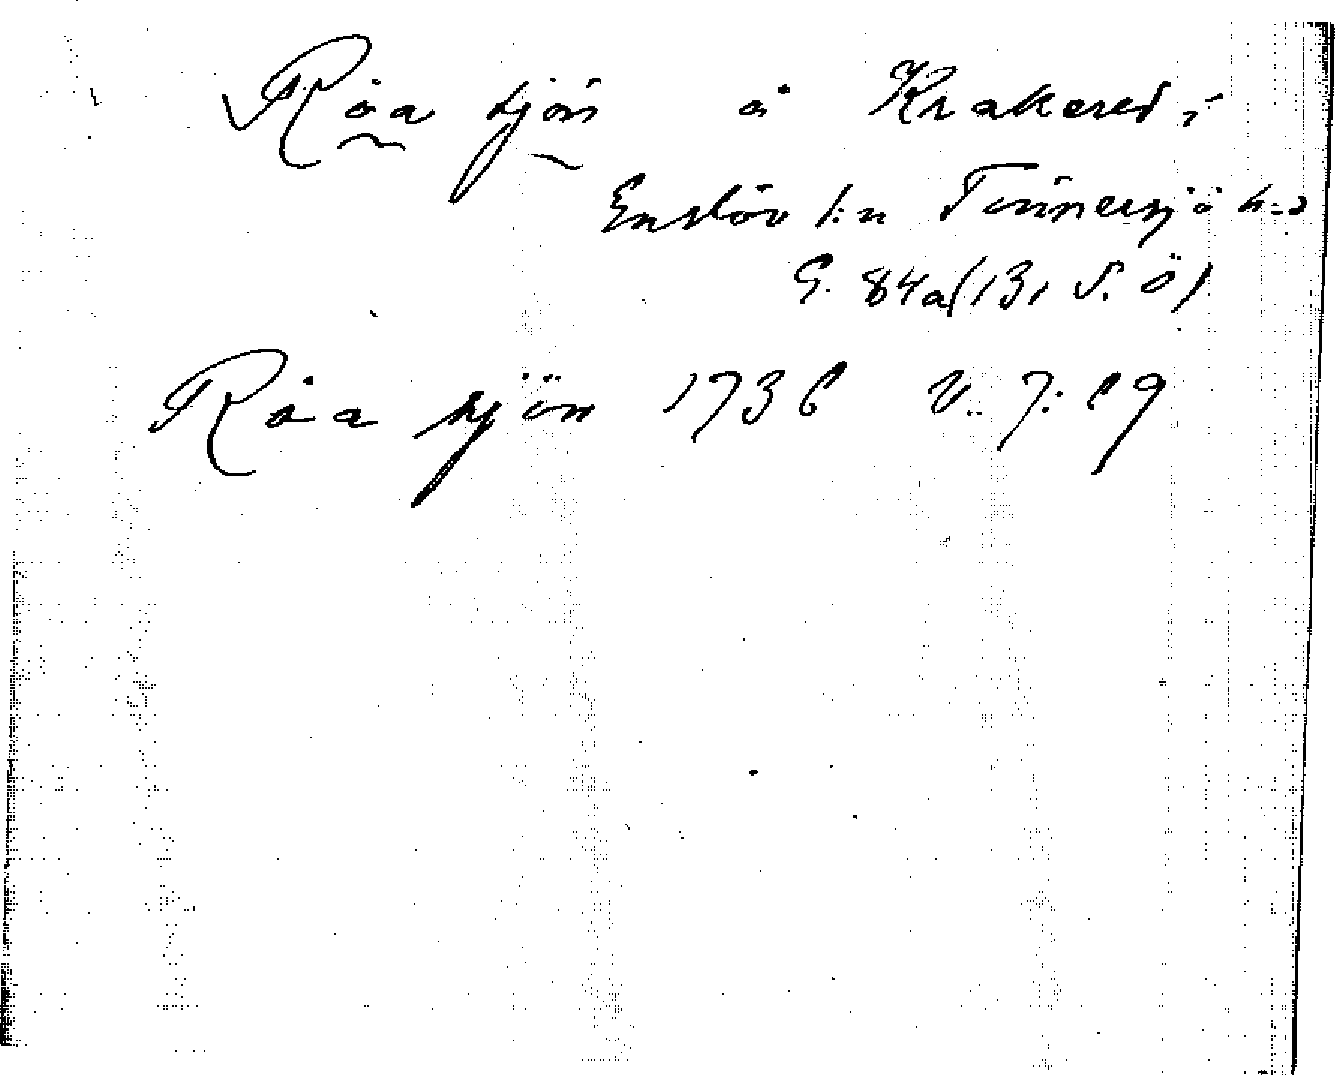 Råa sjön å Krakered i
Enslöv s:n Tönnersjö h:d
G. 84a (131 S. Ö)
Råa sjön 1736 V. 7: 29